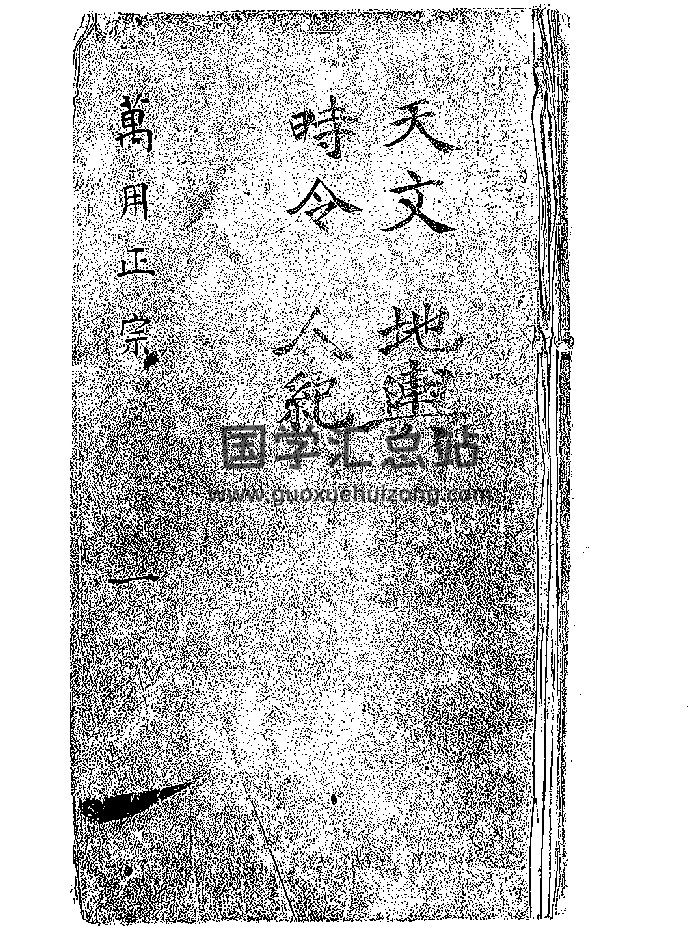 天文 地輿
時令 人紀
萬用正宗 一
国学汇总站
www.guoxuehuizong.com